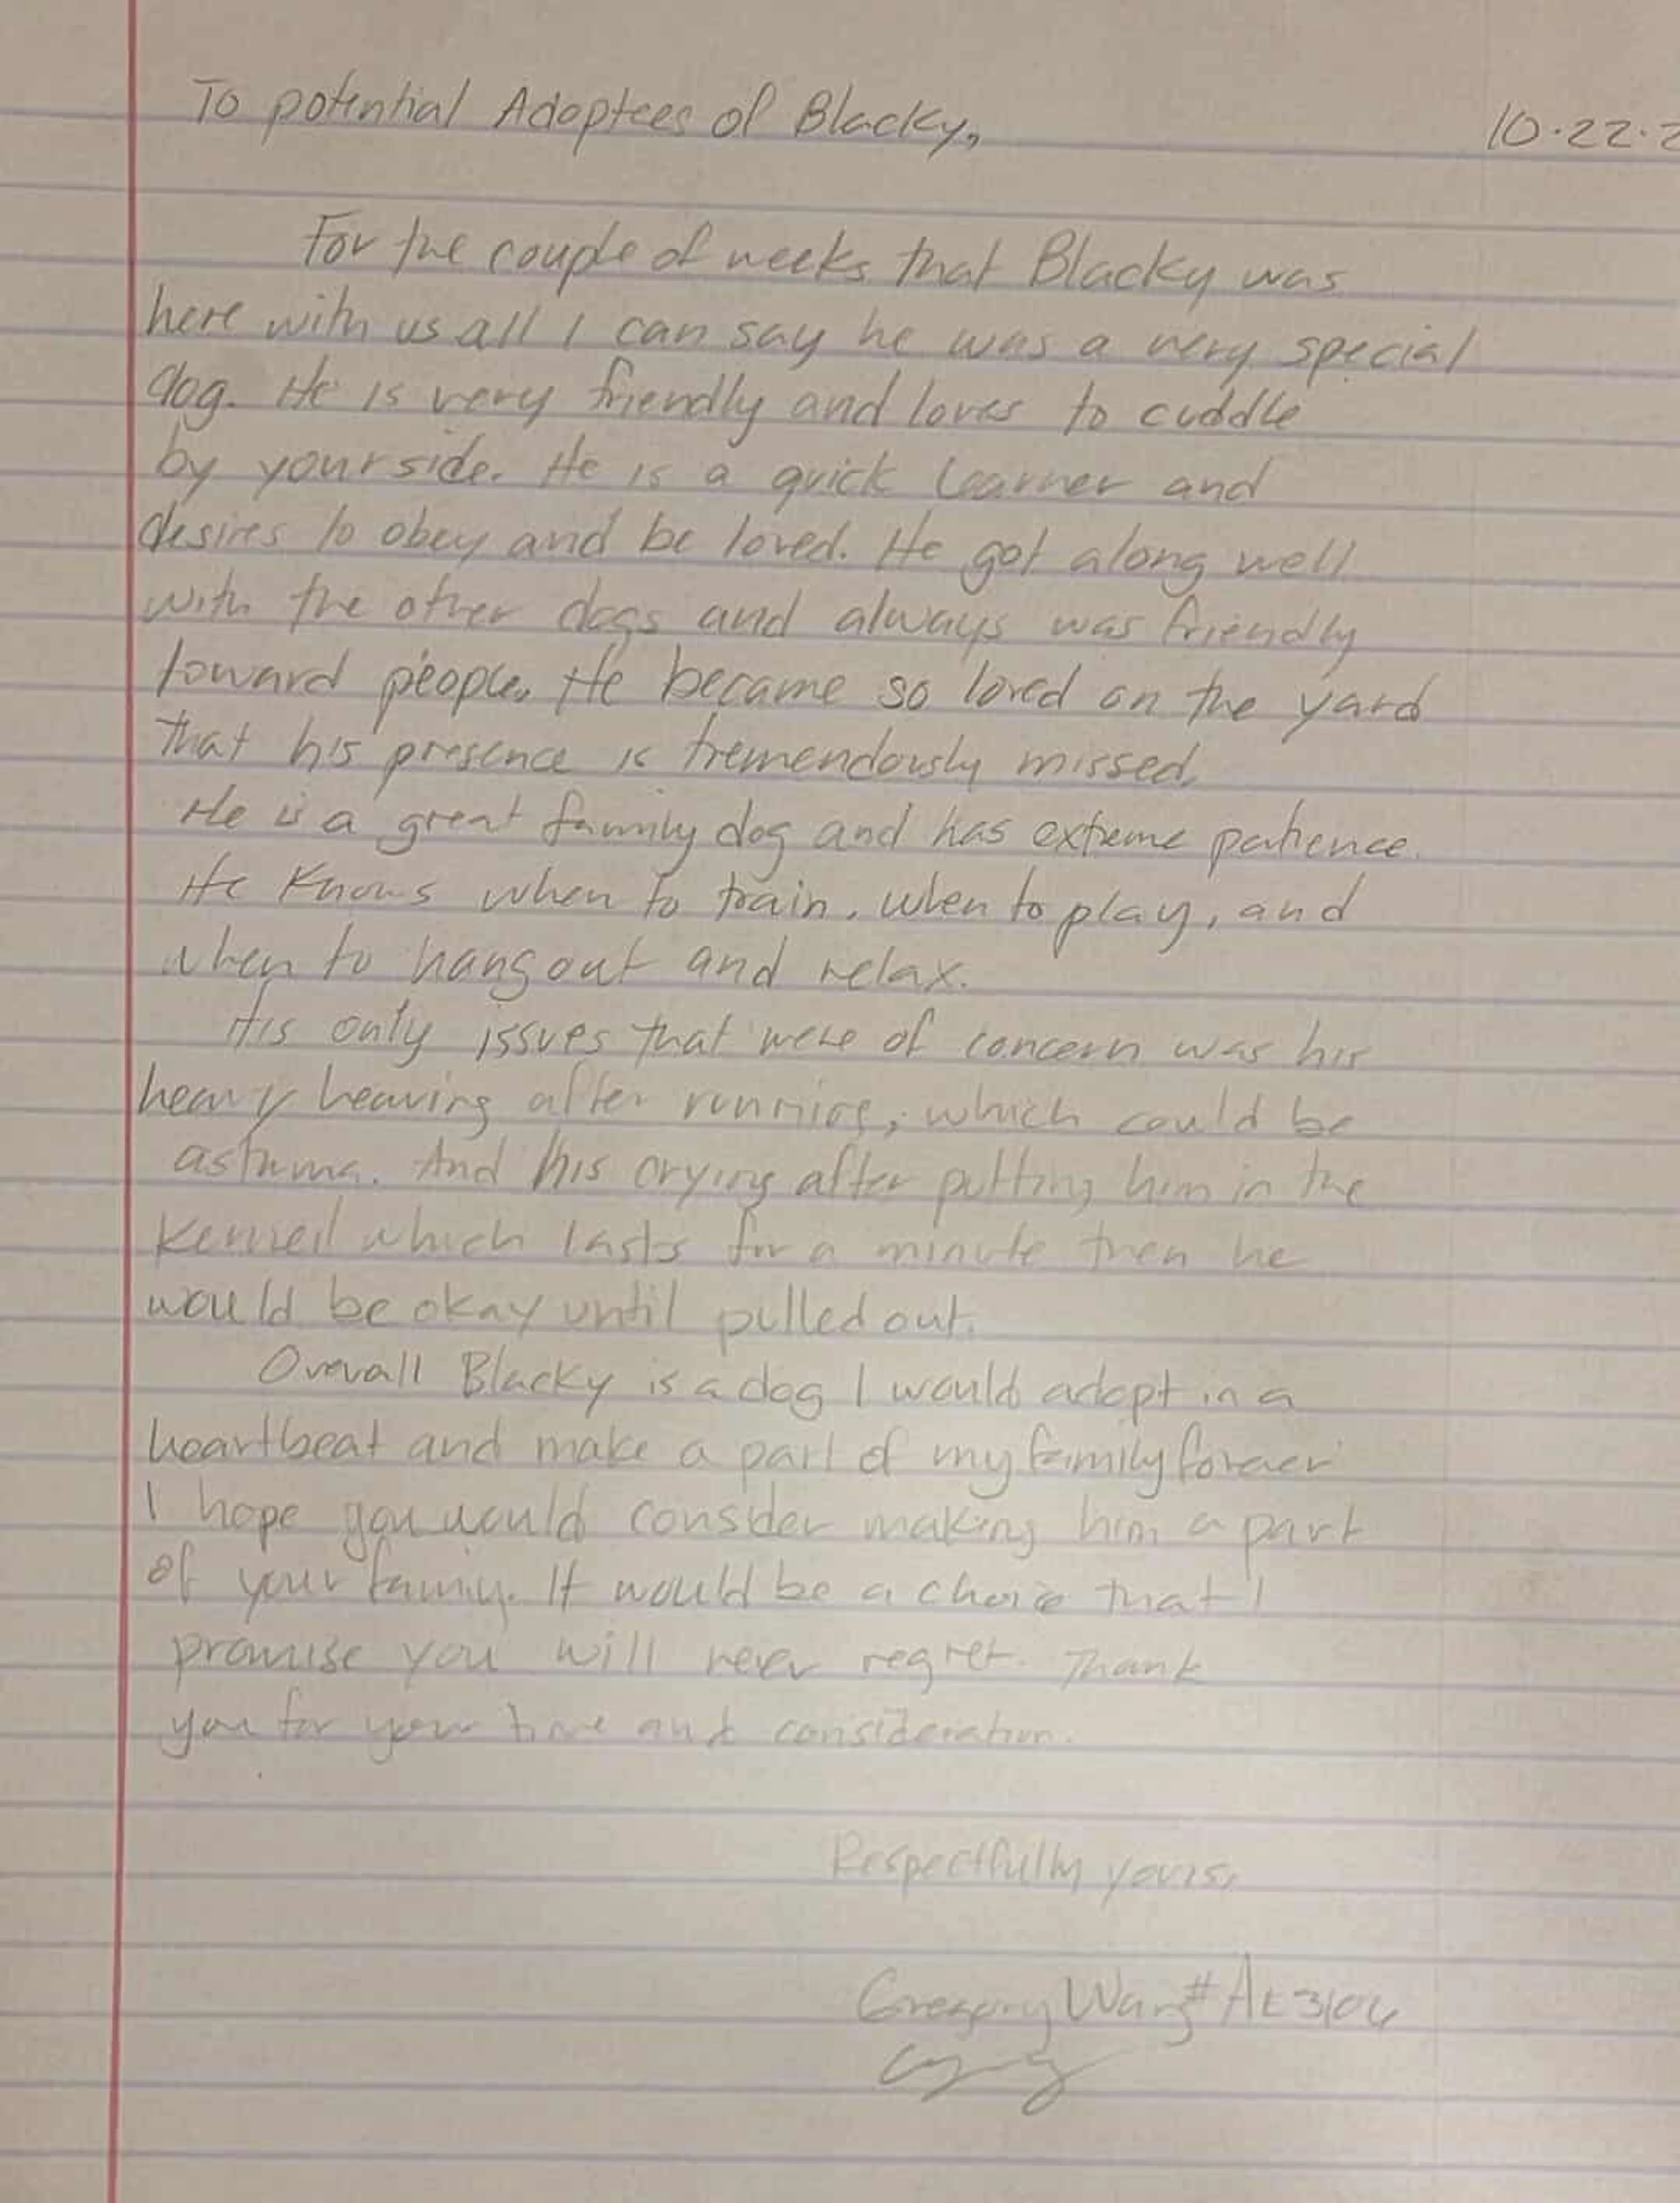 To potential Adoptees of Blacky,
10.22.2
For the couple of weeks that Blacky was
here with us all I can say he was a very special
dog. He is very friendly and loves to cuddle
by your side. He is a quick learner and
desires to obey and be loved. He got along well
with the other dogs and always was friendly
toward people. He became so loved on the yard
that his presence is tremendously missed.
He is a great family dog and has extreme patience.
He knows when to train, when to play, and
when to hang out and relax.
His only issues that were of concern was his
heavy heaving after running, which could be
asthma. And his crying after putting him in the
Kennel which lasts for a minute then he
would be okay until pulled out.
Overall Blacky is a dog I would adopt in a
heartbeat and make a part of my family forever
I hope you would consider making him a part
of your family. It would be a choice that I
promise you will never regret. Thank
you for your time and consideration.
Respectfully yours,
Gregory Wang